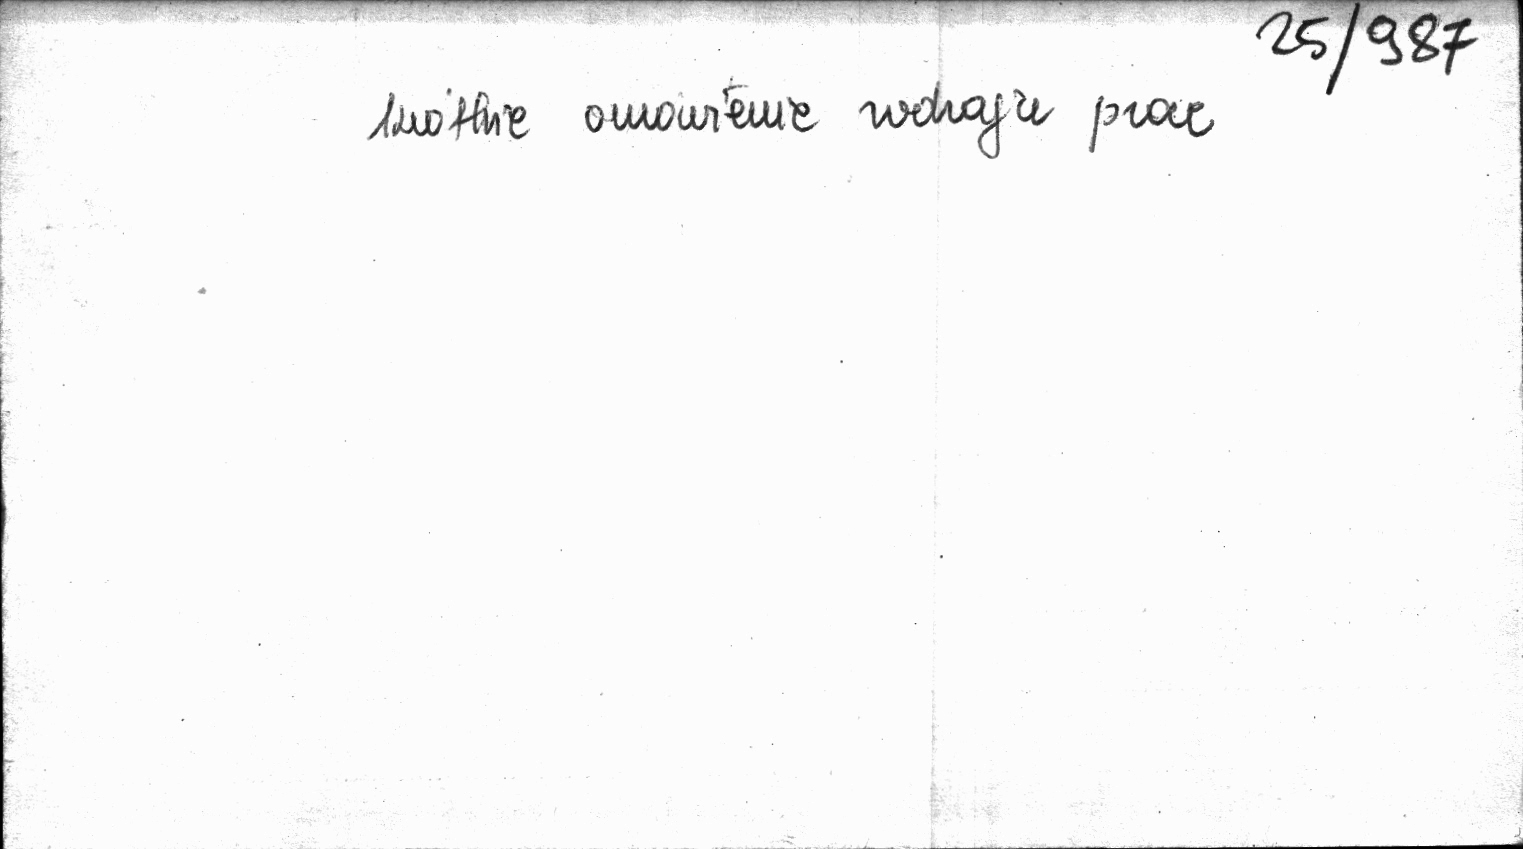 25/987
krótkie omówienie rodzaju prac